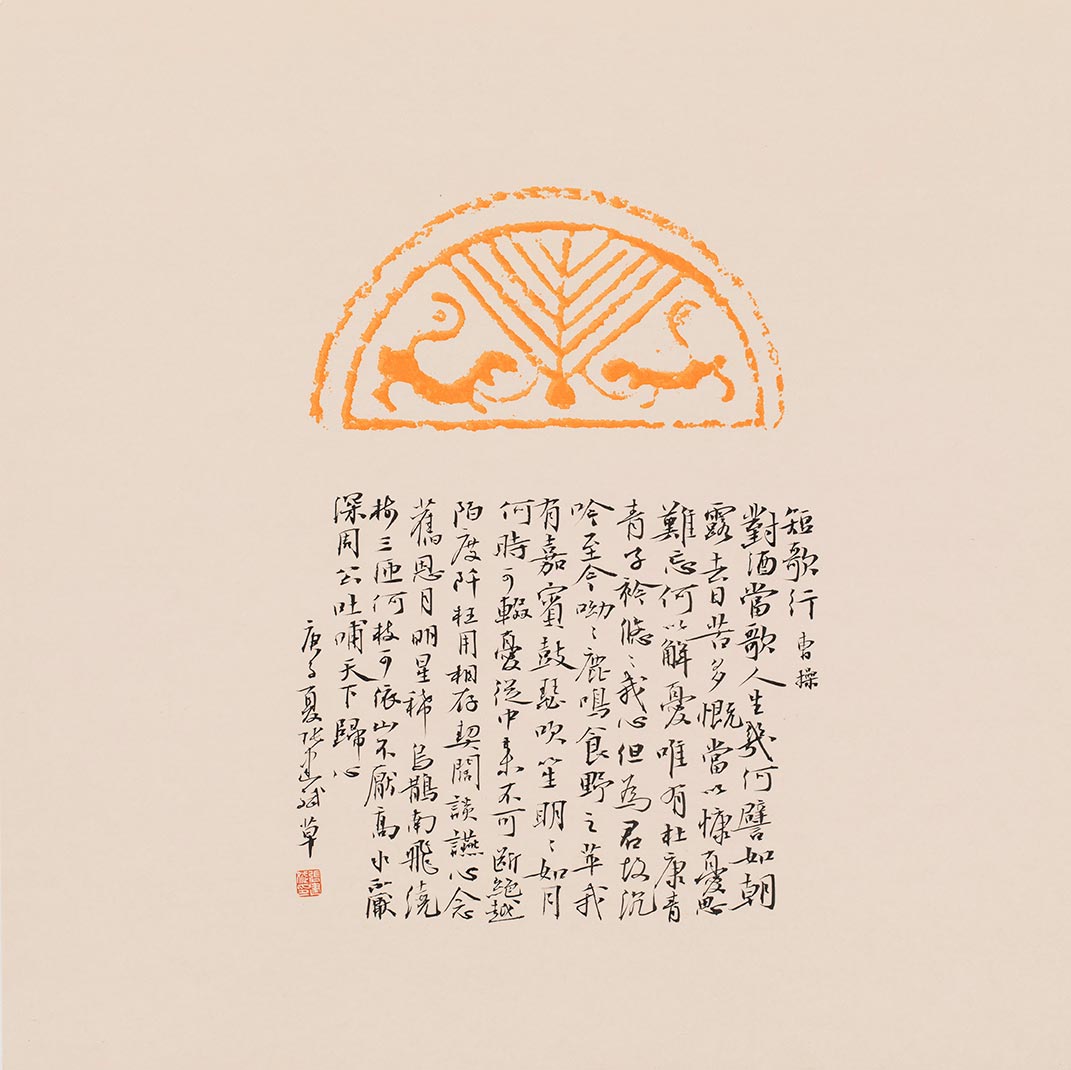 短歌行 曹操
對酒當歌人生幾何譬如朝
露去日苦多慨當以慷憂思
難忘何以解憂唯有杜康青
青子衿悠〻我心但為君故沉
吟至今呦〻鹿鳴食野之苹我
有嘉賓鼓瑟吹笙明〻如月
何時可輟憂從中來不可断絕越
陌度阡枉用相存契闊談讌心念
舊恩月明星稀烏鵲南飛繞
樹三匝何枝可依山不厭高水不厭
深周公吐哺天下歸心
庚子夏张建斌草